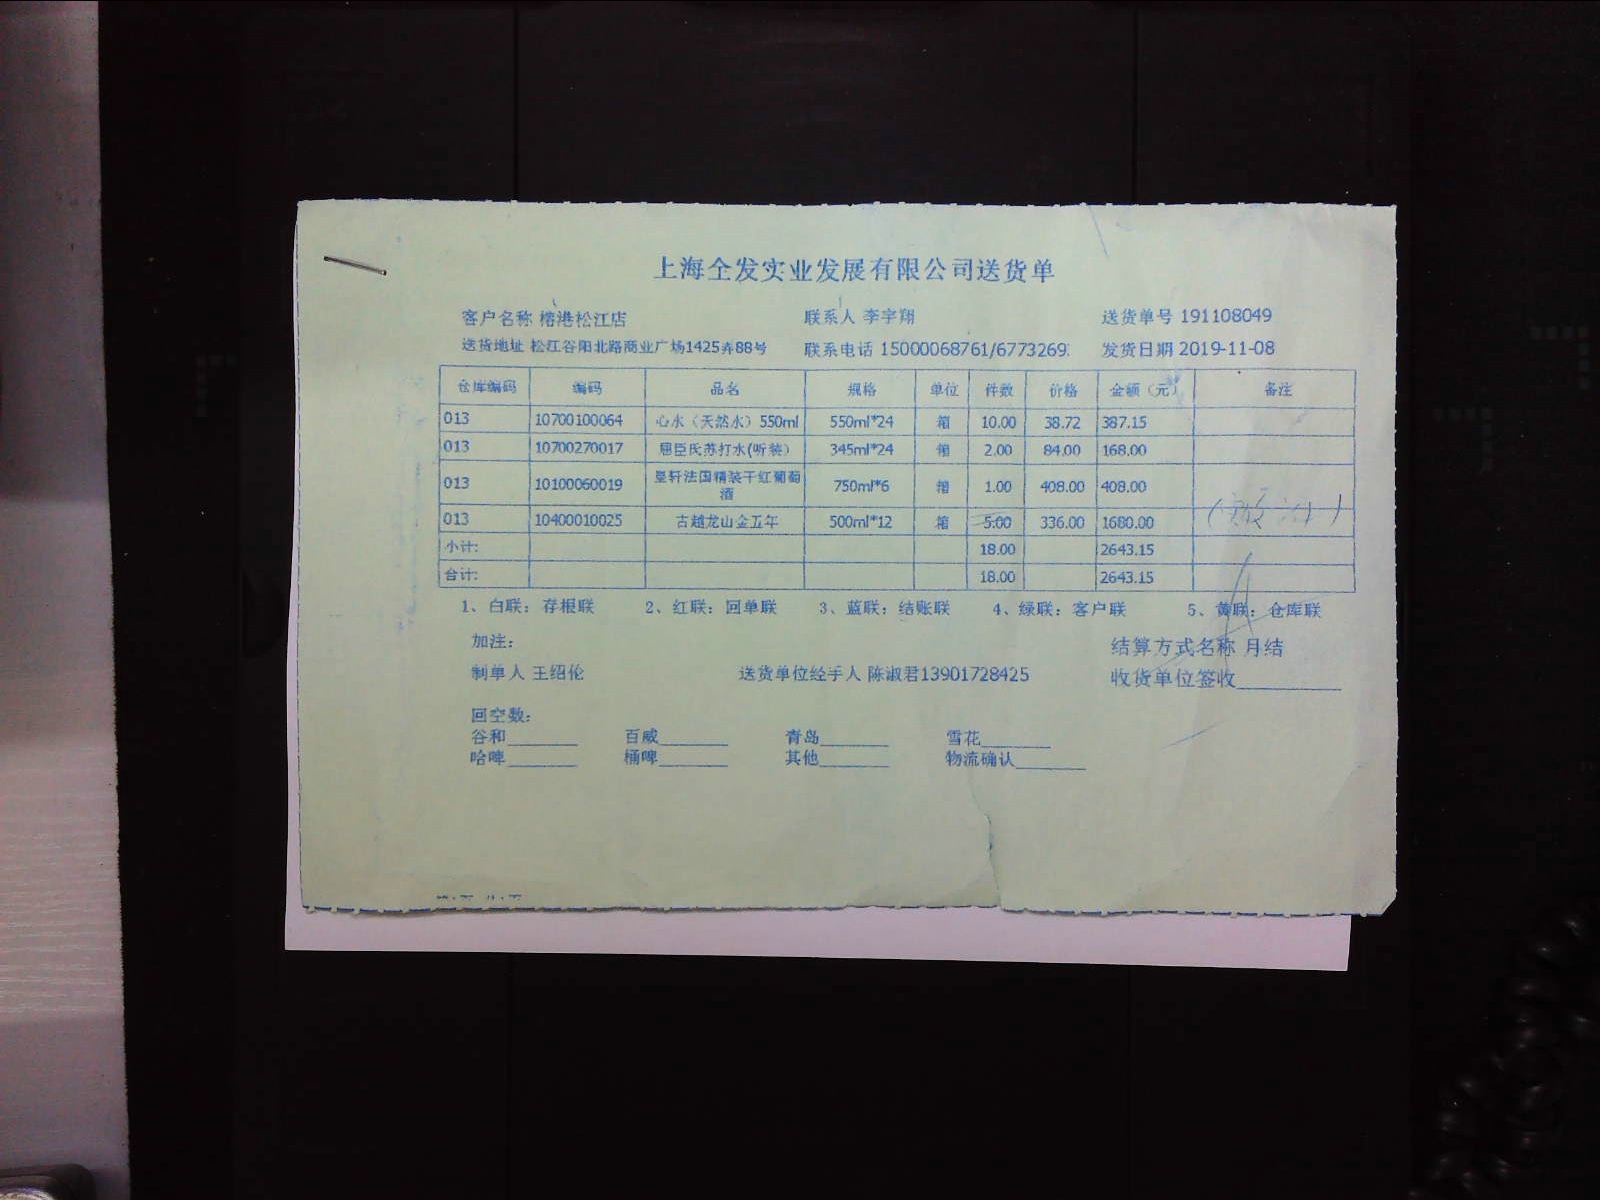 上海全发实业发展有限公司送货单
客户名称 榕港松江店 联系人 李宇翔 送货单号 191108049
送货地址 松江谷阳北路商业广场1425弄88号 联系电话 15000068761/6773269 发货日期 2019-11-08
仓库编码 编码 品名 规格 单位 件数 价格 金额（元） 备注
013 10700100064 心水（天然水）550ml 550ml*24 箱 10.00 38.72 387.15
013 10700270017 屈臣氏苏打水(听装） 345ml*24 箱 2.00 84.00 168.00
013 10100060019 轩法国精装干红葡萄酒 750ml*6 箱 1.00 408.00 408.00
013 10400010025 古越龙山金五年 500ml*12 箱 5.00 336.00 1680.00
小计: 18.00 2643.15
合计: 18.00 2643.15
1、白联：存根联 2、红联：回单联 3、蓝联：结账联 4、绿联：客户联 5、黄联：仓库联
加注： 结算方式名称 月结
制单人 王绍伦 送货单位经手人 陈淑君13901728425 收货单位签收
回空数：
谷和 百威 青岛 雪花
哈啤 桶啤 其他 物流确认